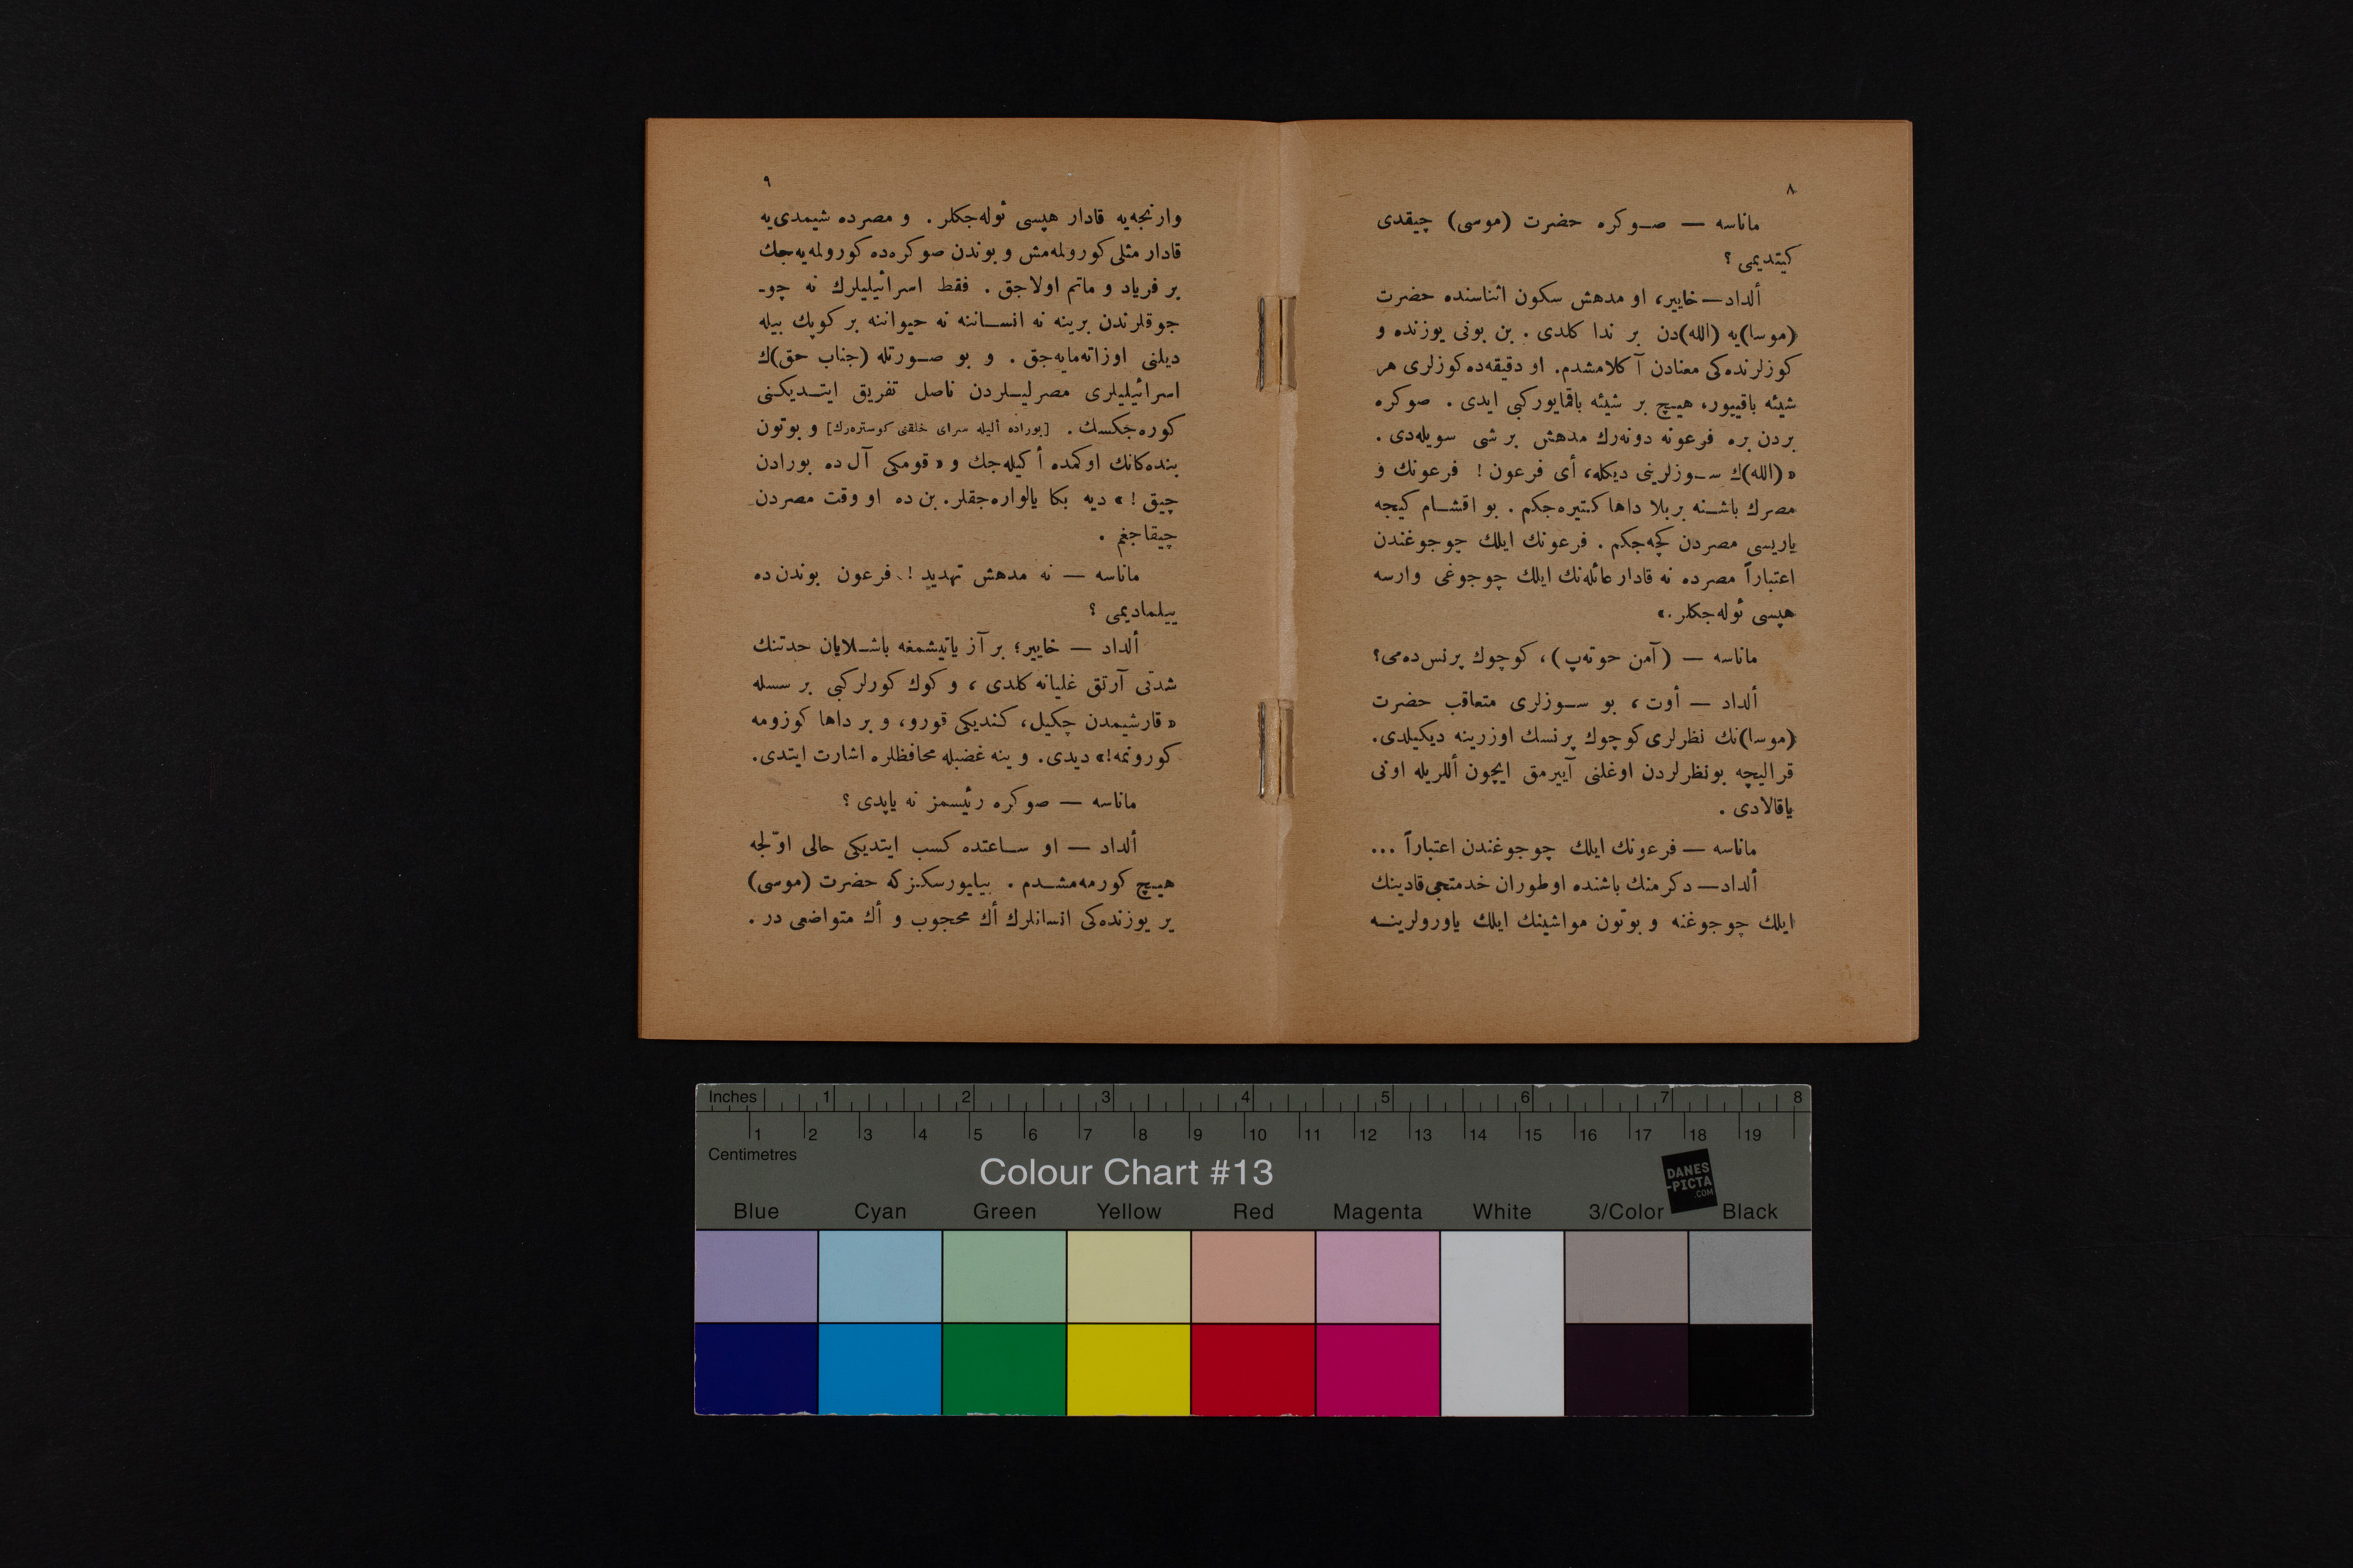 ٨
ماناسه — صوكره حضرت (موسى) چيقدى
كيتديمى ؟
ألداد — خايير، او مدهش سكون اثناسنده حضرت
(موسا)يه (الله)دن بر ندا كلدى . بن بونى يوزنده و
كوزلرنده‌كى معنادن آكلامشدم. او دقيقه‌ده كوزلرى هر
شيئه باقييور، هيچ بر شيئه باقمايور كبى ايدى . صوكره
بردن بره فرعونه دونه‌رك مدهش بر شى سويله‌دى .
« (الله)ك سوزلرينى ديكله، أى فرعون ! فرعونك و
مصرك باشنه بر بلا داها كتيره‌جكم . بو اقشام كيجه
ياريسى مصردن كچه‌جكم . فرعونك ايلك چوجوغندن
اعتباراً مصرده نه قادار عائله‌نك ايلك چوجوغى وارسه
هپسى ئوله‌جكلر .»
ماناسه — (آمن حوته‌پ) ، كوچوك پرنس ده‌مى؟
ألداد — أوت ، بو سوزلرى متعاقب حضرت
(موسا)نك نظرلرى كوچوك پرنسك اوزرينه ديكيلدى.
قراليچه بونظرلردن اوغلنى آييرمق ايچون أللريله اونى
ياقالادى .
ماناسه — فرعونك ايلك چوجوغندن اعتباراً ...
ألداد — دكرمنك باشنده اوطوران خدمتجى قادينك
ايلك چوجوغنه و بوتون مواشينك ايلك ياورولرينه
٩
وارنجه‌يه قادار هپسى ئوله‌جكلر . و مصرده شيمدى‌يه
قادار مثلى كورولمه‌مش و بوندن صوكره‌ده كورولمه‌يه‌جك
بر فرياد و ماتم اولاجق . فقط اسرائيليلرك نه چو-
جوقلرندن برينه نه انساننه نه حيواننه بر كوپك بيله
ديلنى اوزاته‌مايه‌جق . و بو صورتله (جناب حق)ك
اسرائيليلرى مصرليلردن ناصل تفريق ايتديكنى
كوره‌جكسك . [بوراده أليله سراى خلقنى كوستره‌رك] و بوتون
بنده‌كانك اوكمده أكيله‌جك و « قومكى آل ده بورادن
چيق ! » ديه بكا يالواره‌جقلر. بن ده او وقت مصردن
چيقاجغم .
ماناسه — نه مدهش تهديد ! فرعون بوندن ده
ييلماديمى ؟
ألداد — خايير؛ بر آز ياتيشمغه باشلايان حدتنك
شدتى آرتق غليانه كلدى ، و كوك كورلر كبى بر سسله
« قارشيمدن چكيل، كنديكى قورو، و بر داها كوزومه
كورونمه!» ديدى. و ينه غضبله محافظلره اشارت ايتدى.
ماناسه — صوكره رئيسمز نه ياپدى ؟
ألداد — او ساعتده كسب ايتديكى حالى اوّلجه
هيچ كورمه‌مشدم . بيليورسكز كه حضرت (موسى)
ير يوزنده‌كى انسانلرك أك محجوب و أك متواضعى در .
Inches 1 2 3 4 5 6 7 8
1 2 3 4 5 6 7 8 9 10 11 12 13 14 15 16 17 18 19
Centimetres
Colour Chart #13
DANES
-PICTA
.COM
Blue Cyan Green Yellow Red Magenta White 3/Color Black